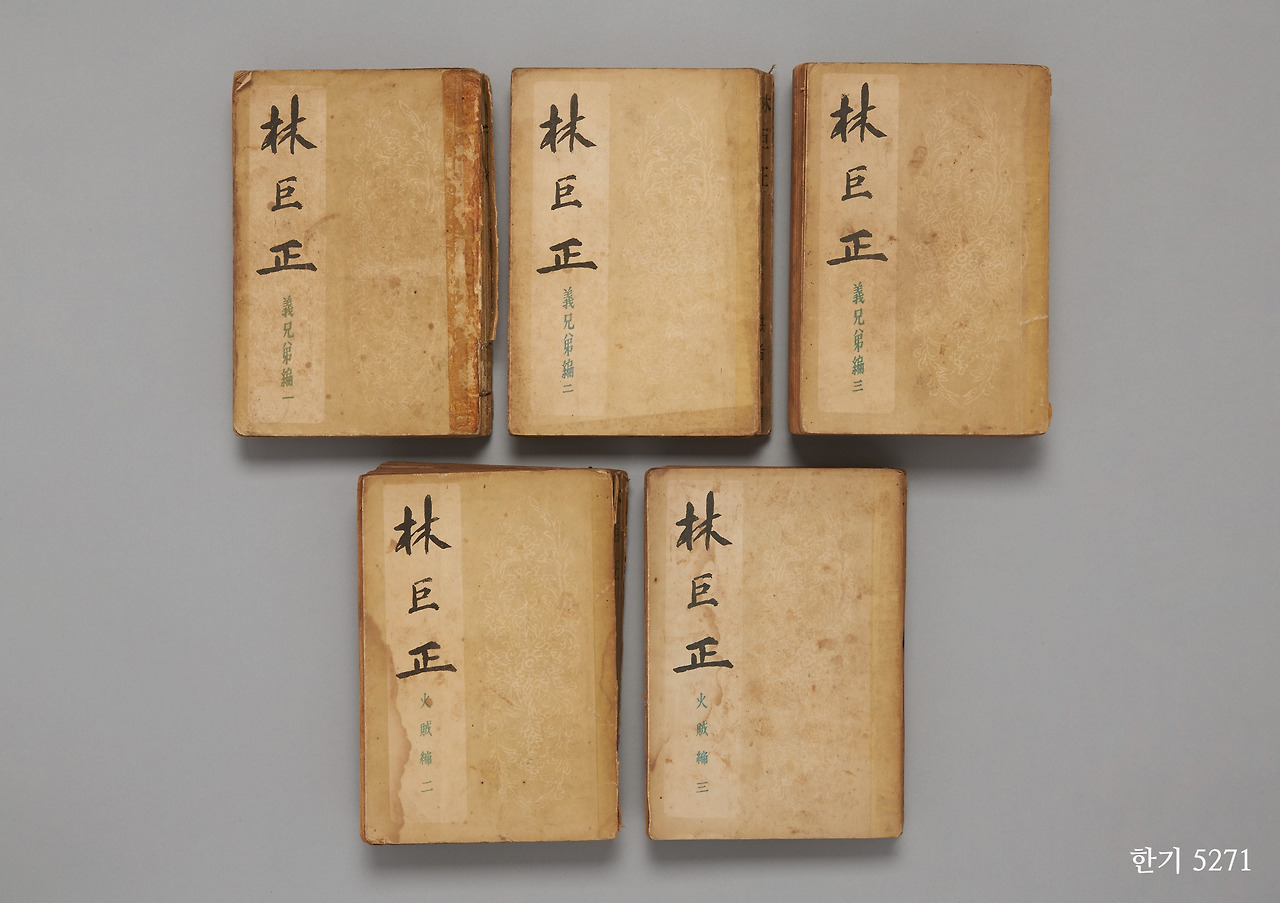 林巨正
義兄弟編 一
林巨正
義兄弟編 二
林巨正
義兄弟編 三
林巨正
火賊編 二
林巨正
火賊編 三
한기 5271